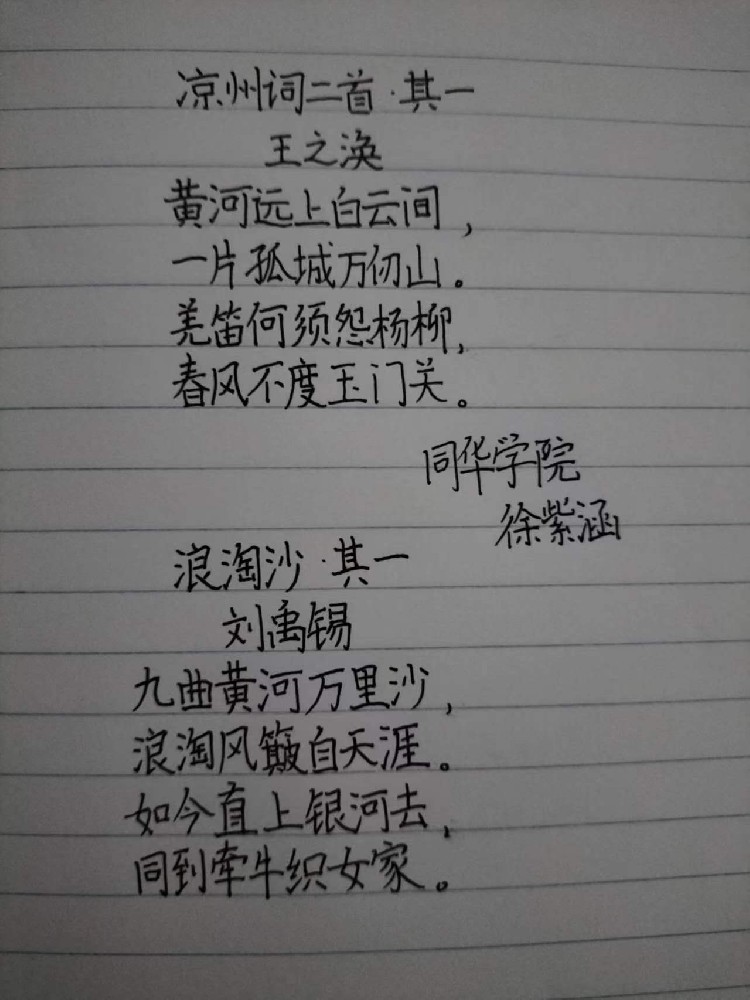 凉州词二首·其一
王之涣
黄河远上白云间，
一片孤城万仞山。
羌笛何须怨杨柳，
春风不度玉门关。
同华学院
徐紫涵
浪淘沙·其一
刘禹锡
九曲黄河万里沙，
浪淘风簸自天涯。
如今直上银河去，
同到牵牛织女家。